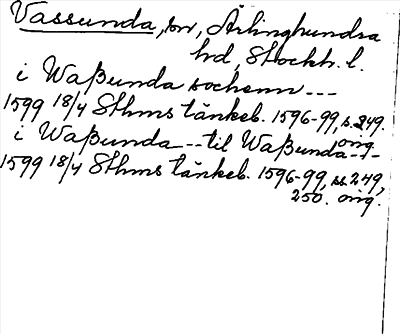 Vassunda, sn, Ärlinghundra
hd, Stockh. l.
i Waßunda sochenn ---
1599 18/4 Sthms tänkeb. 1596-99, s. 249.
orig.
i Waßunda -- til Waßunda --
1599 18/4 Sthms tänkeb. 1596-99, ss 249,
250. orig.